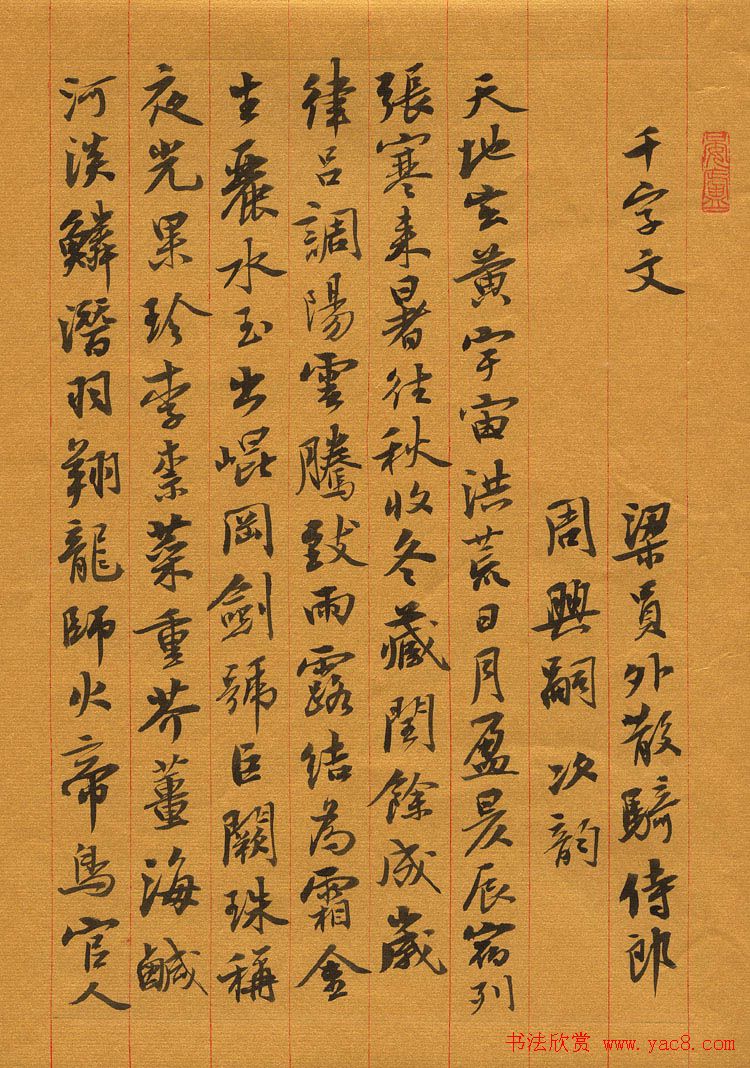 千字文 梁員外散騎侍郎
周興嗣次韵
天地玄黄宇宙洪荒日月盈昃辰宿列
張寒来暑往秋收冬藏閏餘成歲
律吕調陽雲騰致雨露結為霜金
生麗水玉出崐岡劍號巨闕珠稱
夜光果珍李柰菜重芥薑海鹹
河淡鱗潛羽翔龍師火帝鳥官人
书法欣赏 www.yac8.com